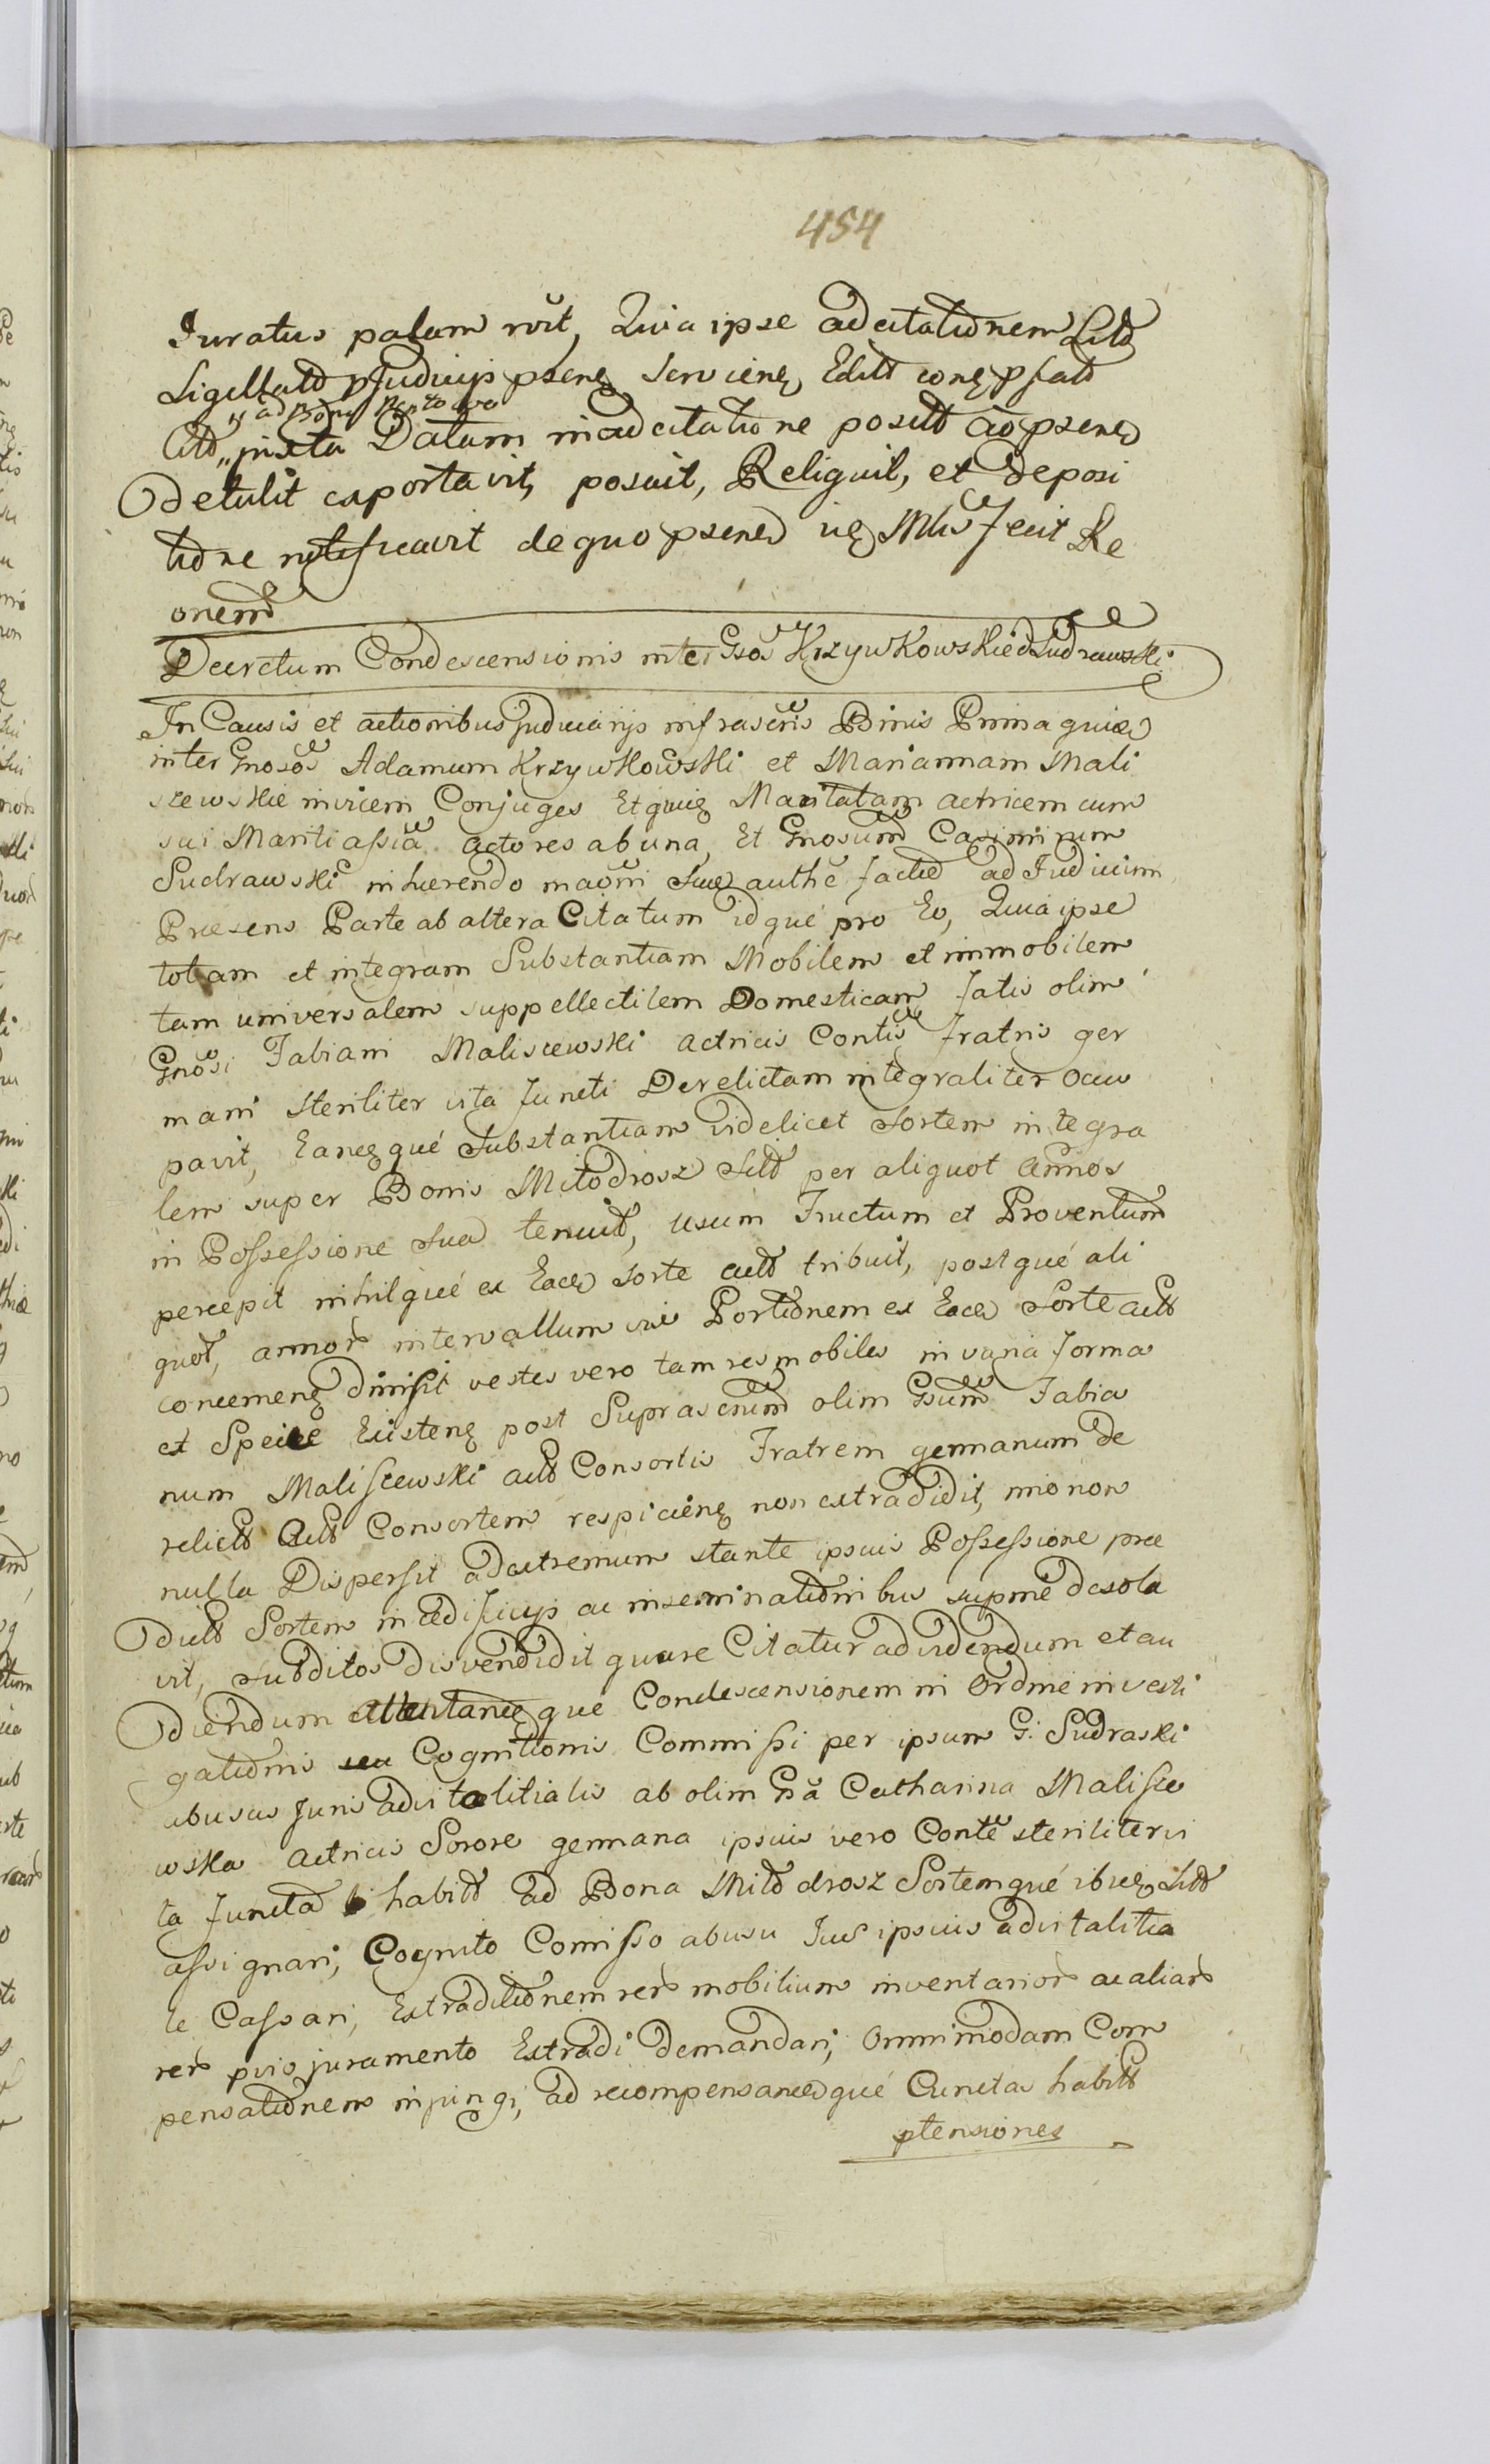 454
Juratus palam rőit, Quia ipse adcitationem Litt
Sigillatt p Judicijs psenę servienę Editt conę psatt
" ad Bona
Citt " juxta Datam in adcitatione positt ao psened
Detulit exportavit, posuit, Reliquit, et Deposi
tione notificavit de quo psened ię Mlis Fecit Re
onem
Decretum Condescensionis inter Gsos Krzywkowskie et Sudrawski
In Causis et actionibus Judiciarijs infrascris Binis Prima quidē
inter Gnosos Adamum Krzywkowski et Mariannam Mali
szewskie invicem Conjuges Et quię Maritatam actricem cum
sui Mariti assia actores ab una, Et Gnosum Casimirum
Sudrawski inhærendo maoni suæ authe factæ ad Judicium
Præsens Parte ab altera Citatum idque pro Eo, Quia ipse
totam et integram Substantiam Mobilem et immobilem
tam universalem suppellectilem Domesticam fatis olim
Gnosi Fabiani Maliscewski actricis Contis Fratris ger
mani steriliter vita functi Derelictam integraliter Occu
pavit, Eanęqué Substantiam videlicet Sortem integra
lem super Bonis Mitodrosz Sitt per aliquot Annos
in Possessione sua tenuit, usum Fructum et Proventum
percepit nihilqué ex Eacę sorte actt tribuit, postqué ali
quot, annor intervallum sui Portionem ex Eacę Sorte actt
concernenę dimisit vestes vero tam res mobiles in varia forma
et Specie Existenę post Suprascrium olim Gsum Fabia
num Maliscewski actt Consortis Fratrem germanum de
relictt Actt Consortem respicienę non extradidit, imo non
nulla Dispersit ad extremum stante ipsius Possessione præ
dictt Sortem in ædificijs ac inseminationibus supme desola
vit, subditos disvendidit quare Citatur ad videndum et au
diendum attentanęqué Condescensionem in Ordine investi
gationis seu Cognitionis Commissi per ipsum G: Sudraski
abusus Juris advitalitialis ab olim Gsa Catharina Malisce
wska actricis Sorore germana ipsius vero Conte steriliter vi
ta functa habitt ad Bona Mitodrosz Sortemqué ibidę Sitt
assignari, Cognito Comisso abusu Jus ipsius advitalitia
le Cassari, Extraditionem rer mobilium inventarior ac aliar
rer pvis juramento Extradi demandari, Omnimodam Com
pensationem injungi, ad recompensanędqué Cunctas habitt
ptensiones